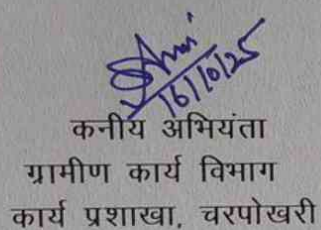 16/10/25
कनीय अभियंता
ग्रामीण कार्य विभाग
कार्य प्रशाखा, चरपोखरी